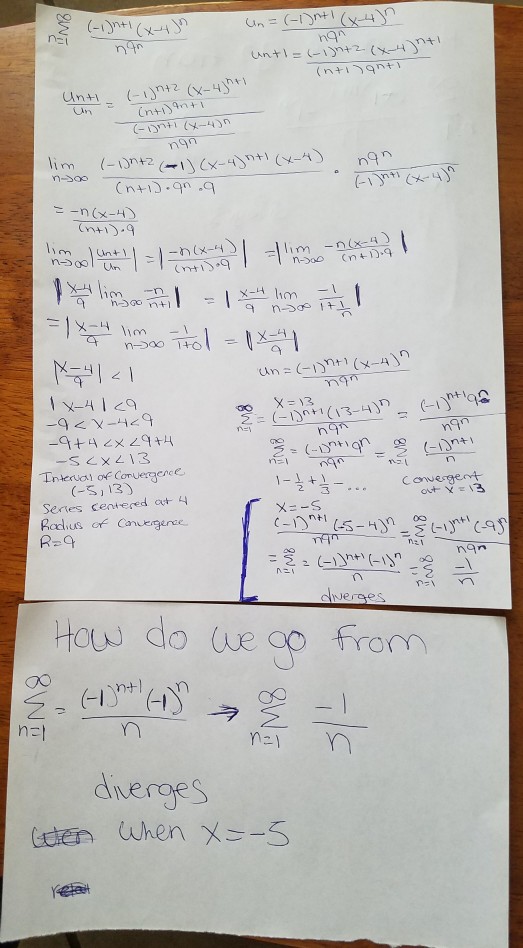 ∞
Σ (-1)^{n+1} (x-4)^n / n9^n    u_n = (-1)^{n+1} (x-4)^n / n9^n
n=1
u_{n+1} = (-1)^{n+2} (x-4)^{n+1} / (n+1) 9^{n+1}
u_{n+1}/u_n = (-1)^{n+2} (x-4)^{n+1} / (n+1) 9^{n+1} / (-1)^{n+1} (x-4)^n / n9^n
lim n→∞ (-1)^{n+2} (-1) (x-4)^{n+1} (x-4) / (n+1)·9^n·9 · n9^n / (-1)^{n+1} (x-4)^n
= -n(x-4) / (n+1)·9
lim n→∞ |u_{n+1}/u_n| = |-n(x-4) / (n+1)·9| = |lim n→∞ -n(x-4) / (n+1)·9|
|x-4/9 lim n→∞ -n/n+1| = |x-4/9 lim n→∞ -1 / 1+1/n|
= |x-4/9 lim n→∞ -1/1+0| = |x-4/9|
|x-4/9| < 1
|x-4| < 9
-9 < x-4 < 9
-9+4 < x < 9+4
-5 < x < 13
Interval of Convergence
(-5, 13)
Series centered at 4
Radius of Convergence
R=9
u_n = (-1)^{n+1} (x-4)^n / n9^n
x=13
∞ Σ n=1 = (-1)^{n+1} (13-4)^n / n9^n = (-1)^{n+1} 9^n / n9^n
∞ Σ n=1 = (-1)^{n+1} 9^n / n9^n = ∞ Σ n=1 (-1)^{n+1} / n
1 - 1/2 + 1/3 - ... convergent
at x=13
x=-5
(-1)^{n+1} (-5-4)^n / n9^n = ∞ Σ n=1 (-1)^{n+1} (-9)^n / n9^n
= ∞ Σ n=1 = (-1)^{n+1} (-1)^n / n = ∞ Σ n=1 -1/n
diverges
How do we go from
∞ Σ n=1 = (-1)^{n+1} (-1)^n / n → ∞ Σ n=1 -1/n
diverges
when x=-5